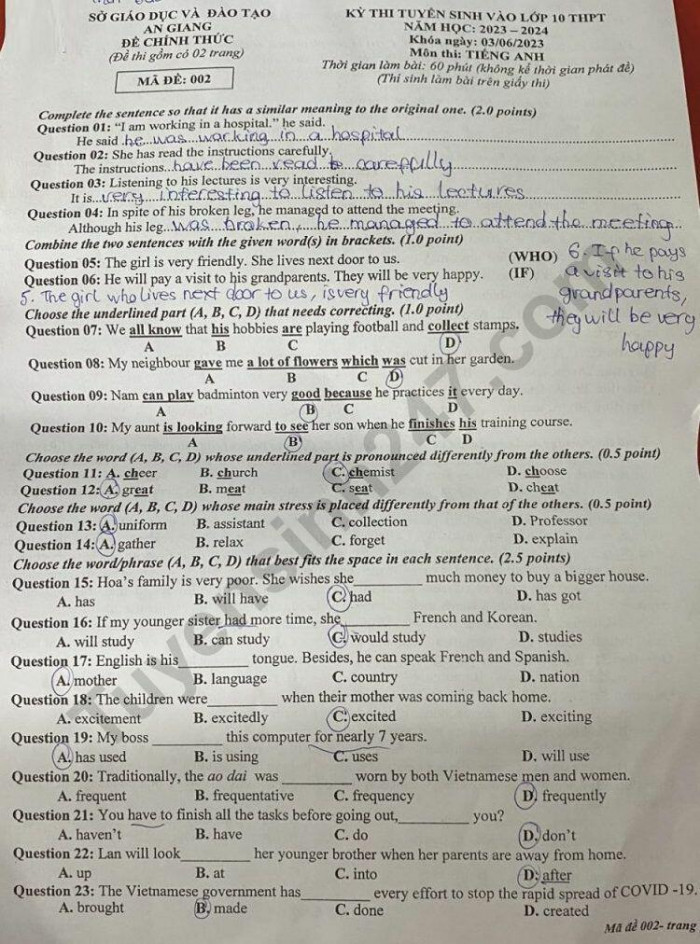 SỞ GIÁO DỤC VÀ ĐÀO TẠO
AN GIANG
ĐỀ CHÍNH THỨC
(Đề thi gồm có 02 trang)
MÃ ĐỀ: 002
KỲ THI TUYỂN SINH VÀO LỚP 10 THPT
NĂM HỌC: 2023 – 2024
Khóa ngày: 03/06/2023
Môn thi: TIẾNG ANH
Thời gian làm bài: 60 phút (không kể thời gian phát đề)
(Thí sinh làm bài trên giấy thi)
Complete the sentence so that it has a similar meaning to the original one. (2.0 points)
Question 01: “I am working in a hospital.” he said.
He said he was working in a hospital
Question 02: She has read the instructions carefully.
The instructions have been read carefully
Question 03: Listening to his lectures is very interesting.
It is very interesting to listen to his lectures
Question 04: In spite of his broken leg, he managed to attend the meeting.
Although his leg was broken, he managed to attend the meeting
Combine the two sentences with the given word(s) in brackets. (1.0 point)
Question 05: The girl is very friendly. She lives next door to us. (WHO)
Question 06: He will pay a visit to his grandparents. They will be very happy. (IF)
5. The girl who lives next door to us, is very friendly
6. If he pays
a visit to his
grandparents,
they will be very
happy
Choose the underlined part (A, B, C, D) that needs correcting. (1.0 point)
Question 07: We all know that his hobbies are playing football and collect stamps.
A B C D
Question 08: My neighbour gave me a lot of flowers which was cut in her garden.
A B C D
Question 09: Nam can play badminton very good because he practices it every day.
A B C D
Question 10: My aunt is looking forward to see her son when he finishes his training course.
A B C D
Choose the word (A, B, C, D) whose underlined part is pronounced differently from the others. (0.5 point)
Question 11: A. cheer B. church C. chemist D. choose
Question 12: A. great B. meat C. seat D. cheat
Choose the word (A, B, C, D) whose main stress is placed differently from that of the others. (0.5 point)
Question 13: A. uniform B. assistant C. collection D. Professor
Question 14: A. gather B. relax C. forget D. explain
Choose the word/phrase (A, B, C, D) that best fits the space in each sentence. (2.5 points)
Question 15: Hoa’s family is very poor. She wishes she________ much money to buy a bigger house.
A. has B. will have C. had D. has got
Question 16: If my younger sister had more time, she________ French and Korean.
A. will study B. can study C. would study D. studies
Question 17: English is his________ tongue. Besides, he can speak French and Spanish.
A. mother B. language C. country D. nation
Question 18: The children were________ when their mother was coming back home.
A. excitement B. excitedly C. excited D. exciting
Question 19: My boss ________ this computer for nearly 7 years.
A. has used B. is using C. uses D. will use
Question 20: Traditionally, the ao dai was ________ worn by both Vietnamese men and women.
A. frequent B. frequentative C. frequency D. frequently
Question 21: You have to finish all the tasks before going out,________ you?
A. haven’t B. have C. do D. don’t
Question 22: Lan will look________ her younger brother when her parents are away from home.
A. up B. at C. into D. after
Question 23: The Vietnamese government has________ every effort to stop the rapid spread of COVID -19.
A. brought B. made C. done D. created
Mã đề 002- trang
Tuyensinh247.com